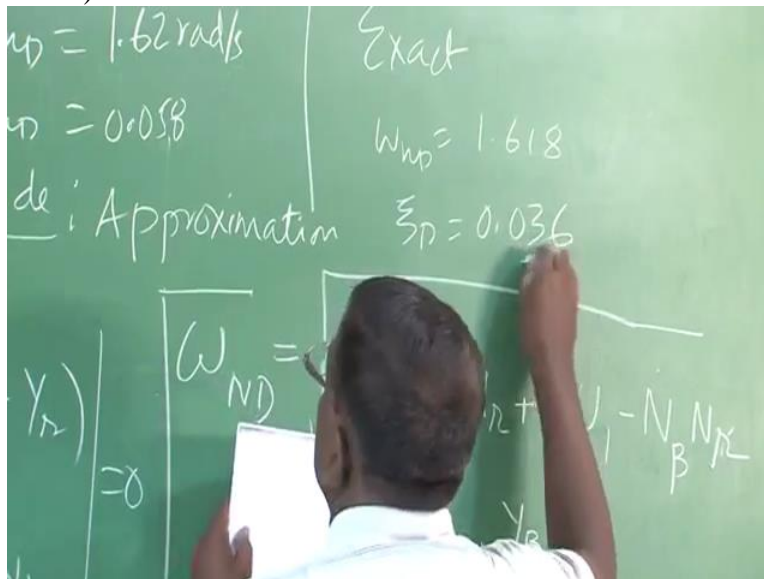 nD = 1.62 rad/s
nD = 0.058
de : Approximation
Exact
ωnD = 1.618
ξD = 0.036
Yr)
=0
ωND =
r + U1 - Nβ Nr
Yβ